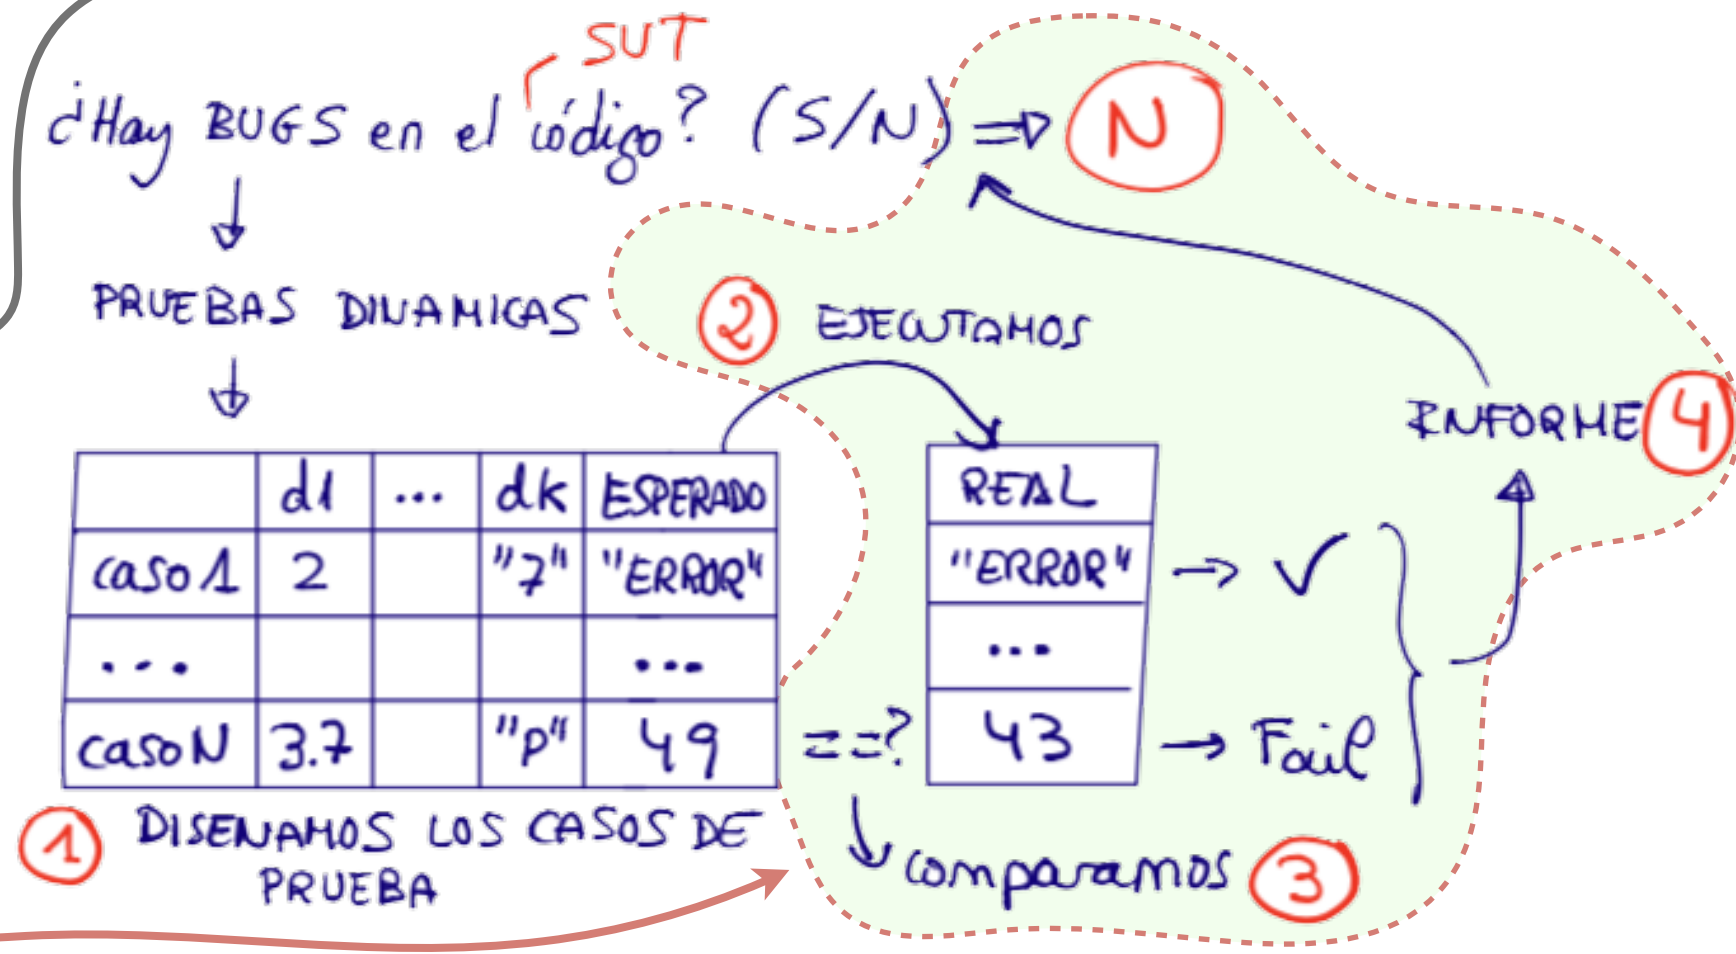 SUT
¿Hay BUGS en el código? (S/N) ⇒ N
PRUEBAS DINAMICAS
2 EJECUTAMOS
INFORME 4
d1 ... dk ESPERADO
REAL
caso 1 2 "7" "ERROR"
"ERROR" → ✓
... ...
...
caso N 3.7 "p" 49
==?
43 → Fail
1 DISEÑAMOS LOS CASOS DE
PRUEBA
comparamos 3